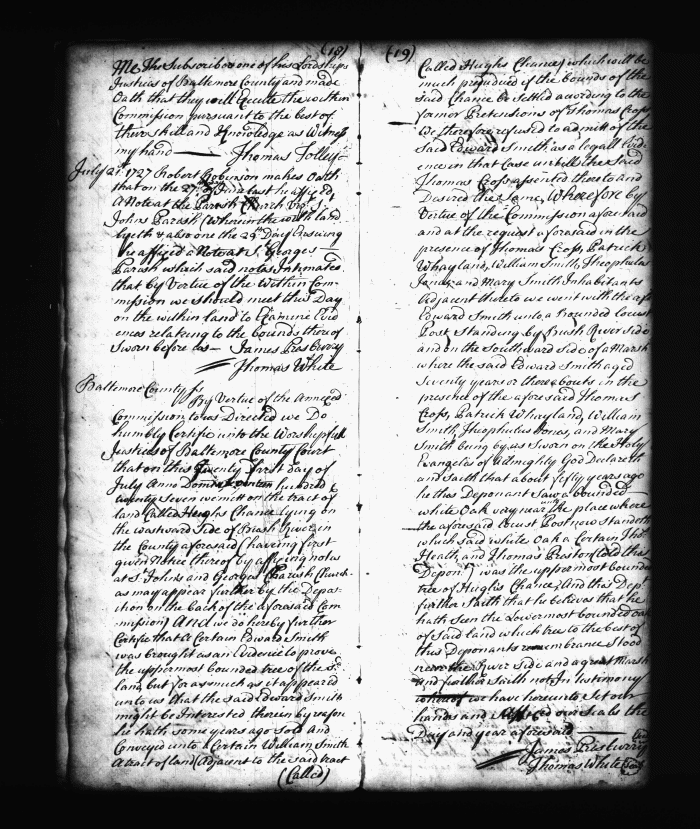 (18)
Me The Subscriber one of his Lordships
Justices of Baltemore County and made
Oath that they will Execute the within
Commission pursuant to the best of
their skill and Knowledge as Witness
my hand — Thomas Tolley
July 21st 1727 Robert Robinson makes Oath
that on the 27th of June last he affixed
A Note at the Parish Church
Johns Parash (wherein the land
lyeth & also one the 29th Day Ensuing
he affixed a Note at St Georges
Parash which said notes Intimates
that by Vertue of the Within Com-
mission we should meet this Day
on the within land to Examine Evid
ences relating to the bounds thereof
Sworn before us — James Presbury
Thomas White
Baltimore County ss
By Vertue of the Annexed
Commission to us Directed we Do
humbly Certifie unto the Worshipfull
Justices of Baltemore County Court
that on this Twenty first day of
July Anno hundred &
twenty Seven we mett on the tract of
land Called Hughs Chance lying on
the westward Side of Bush River in
the County aforesaid (having first
given Notice thereof by affixing notes
at St Johns and Georges Parish Church
as may appear further by the Depos-
ition on the back of the aforesaid Com
mission) And we do hereby further
Certifie that a Certain Edward Smith
was brought as an Evidence to prove
the uppermost bounded tree of the sd
land, but for as much as it appeared
unto us that the said Edward Smith
might be Interested therein by reason
he hath some years ago Sold and
Conveyed unto a Certain William Smith
a tract of land (Adjacent to the said tract
(Called)
(19)
Called Hughs Chance) which will be
much prejudiced if the bounds of the
said Chance be Settled according to the
former Pretensions of Thomas Cross
We therefore refused to admitt of the
Said Edward Smith as a legall Evid
ence in that Case untill the said
Thomas Cross assented thereto and
Desired the Same, Wherefore by
Vertue of the Commission aforesaid
and at the request aforesaid in the
presence of Thomas Cross, Patrick
Whayland, William Smith, Theophilus
Jones and Mary Smith Inhabitants
Adjacent thereto we went with the afsd
Edward Smith unto a bounded Locust
Post Standing by Bush River side
and on the Southward Side of a Marsh
where the said Edward Smith aged
Seventy years or thereabouts in the
presence of the aforesaid Thomas
Cross, Patrick Whayland, William
Smith, Theophilus Jones, and Mary
Smith being by us Sworn on the Holy
Evangeles of Almighty God Declareth
and Saith that about fifty years ago
he this Deponant Saw a bounded
white Oak very near the place where
the aforesaid Locust Post now Standeth
which said white Oak a Certain Thos
Heath, and Thomas Preston told this
Depont was the uppermost bounded
tree of Hughs Chance, And this Dept
further Saith that he believes that he
hath Seen the Lowermost bounded oak
of Said land which tree to the best of
this Deponants remembrance Stood
near the River Side and a great Marsh
and further Saith not In testimony
whereof we have hereunto Set our
hands and Affixed our Seals the
Day and year aforesaid
James Presbury
Thomas White